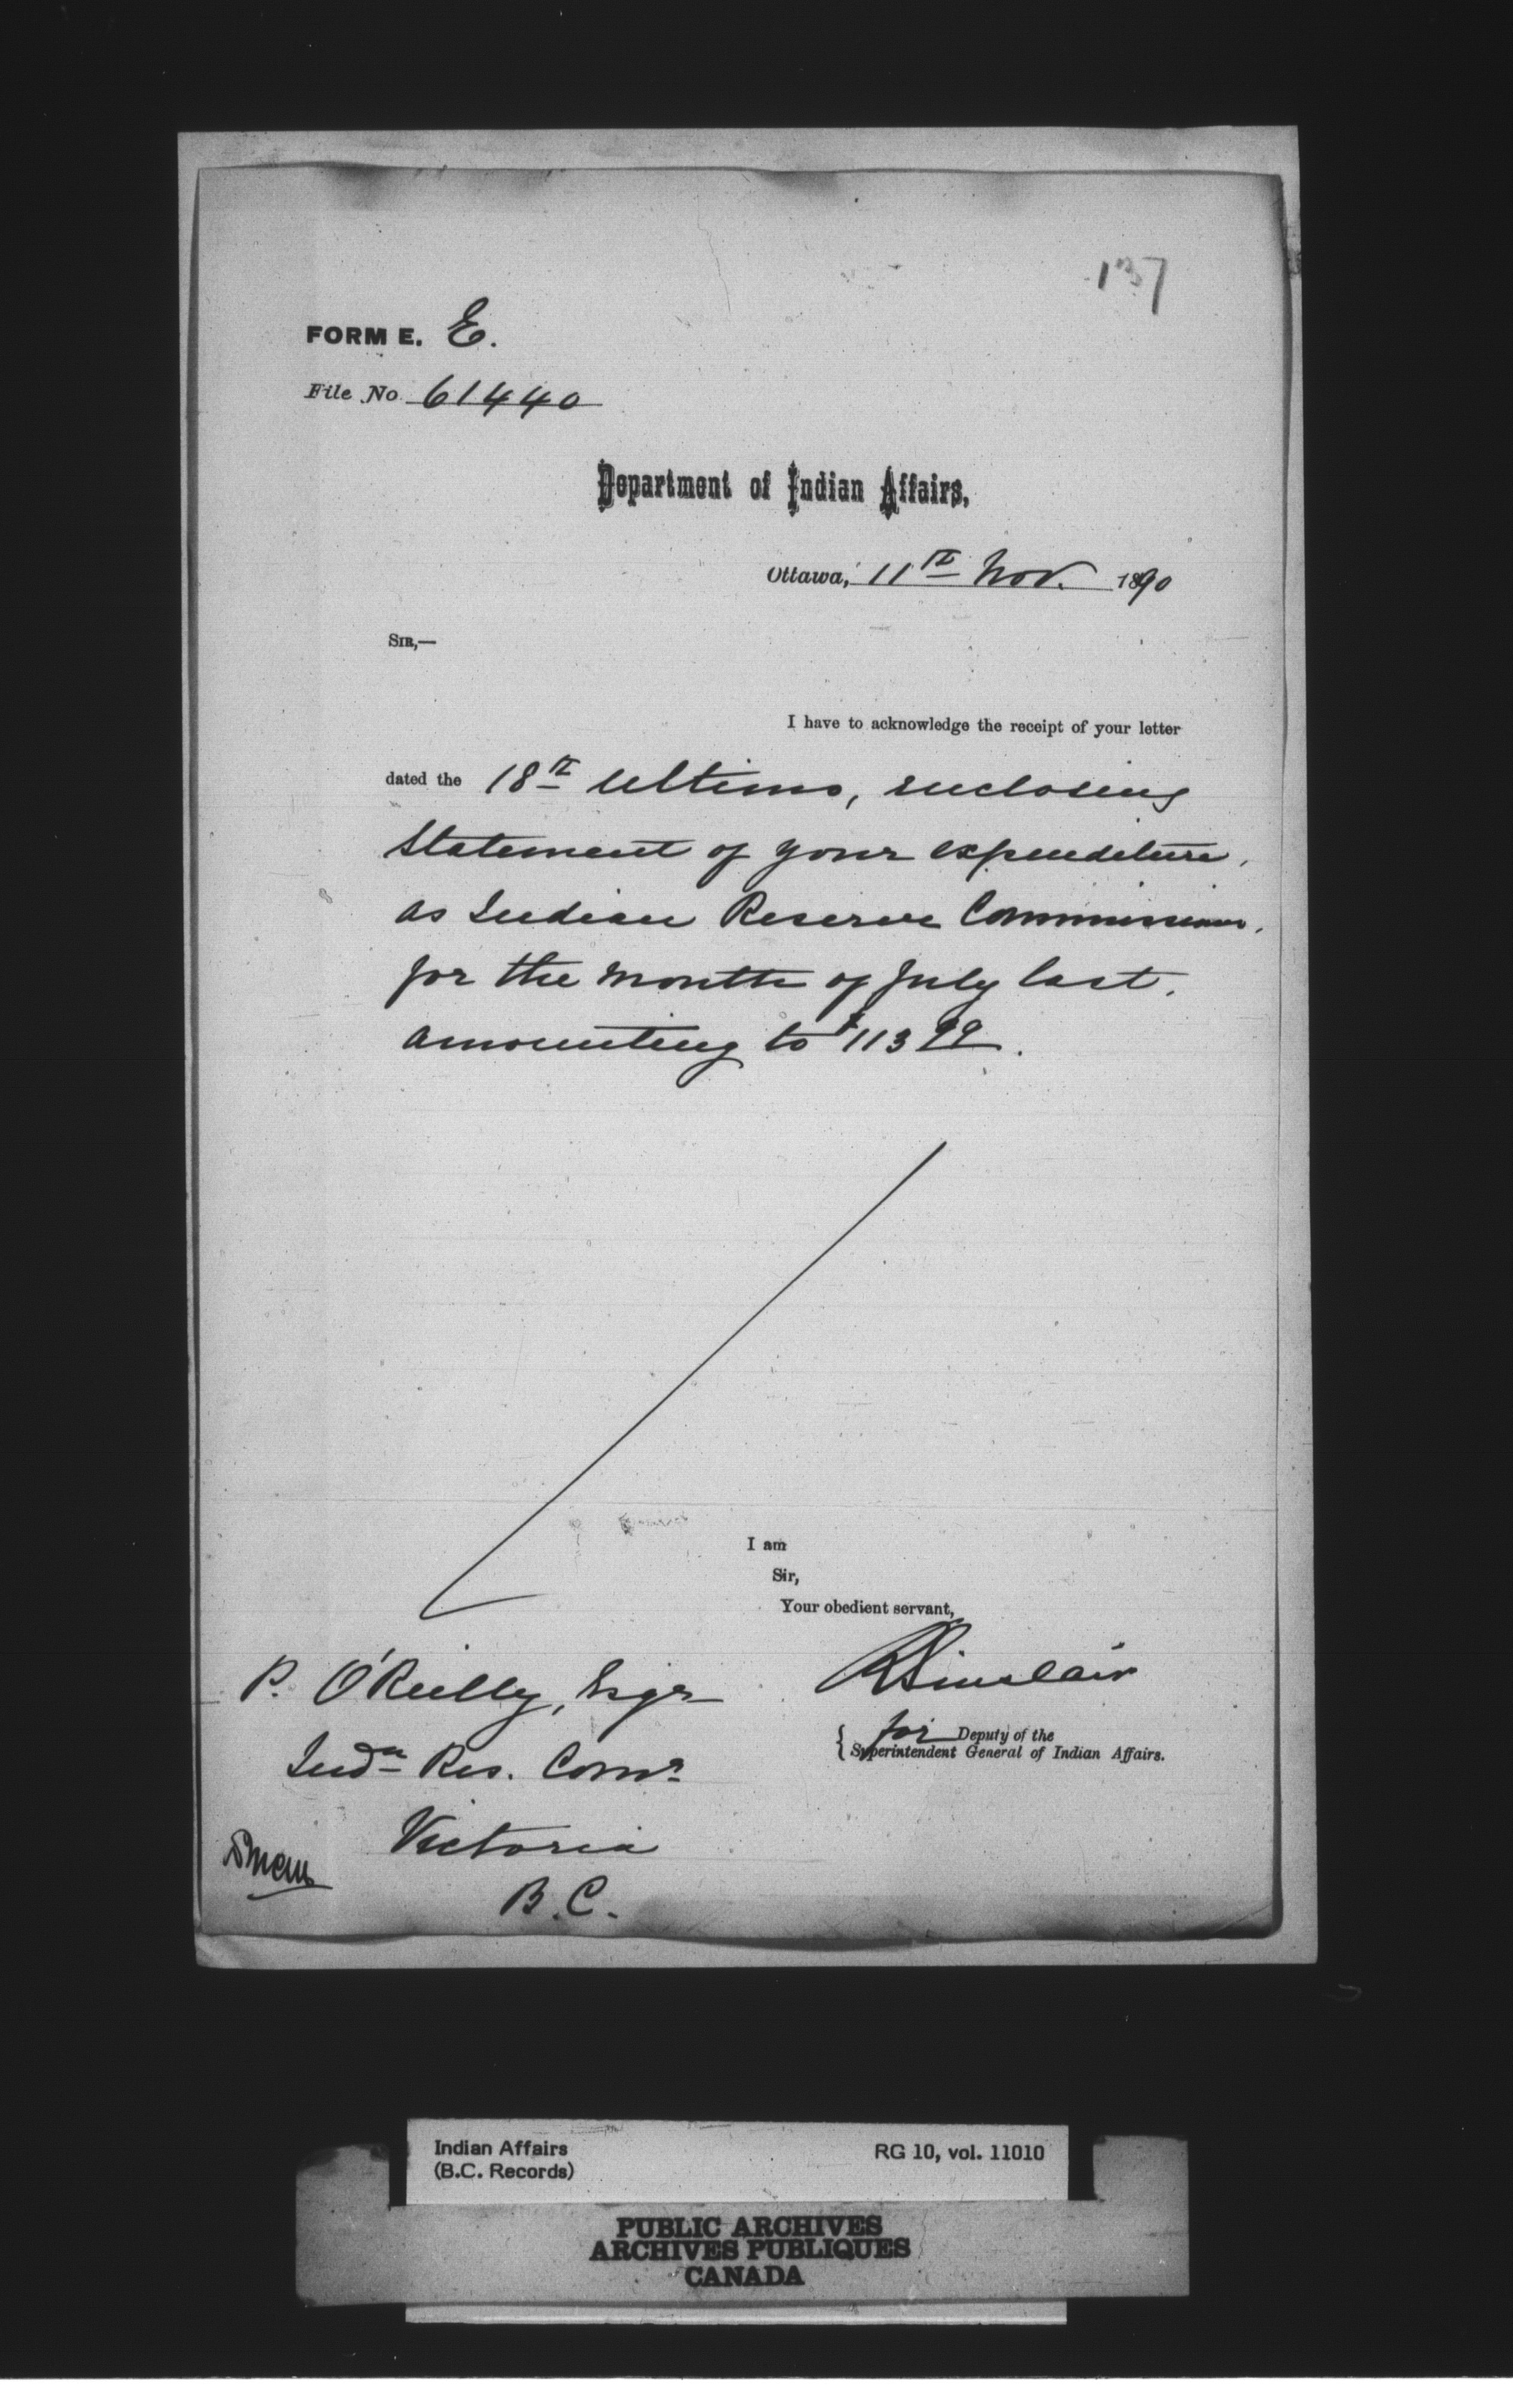 137
FORM E. E.
File No 61440
Department of Indian Affairs,
Ottawa, 11th Nov. 1890
SIR,—
I have to acknowledge the receipt of your letter
dated the 18th Ultimo, enclosing
Statement of your expenditure,
as Indian Reserve Commissioner,
for the month of July last,
amounting to $113 99.
I am
Sir,
Your obedient servant,
R Sinclair
for Deputy of the
Superintendent General of Indian Affairs.
P. O'Reilly, Esqr
Indn Res. Comr
Victoria
B.C.
Indian Affairs
(B.C. Records)
RG 10, vol. 11010
PUBLIC ARCHIVES
ARCHIVES PUBLIQUES
CANADA